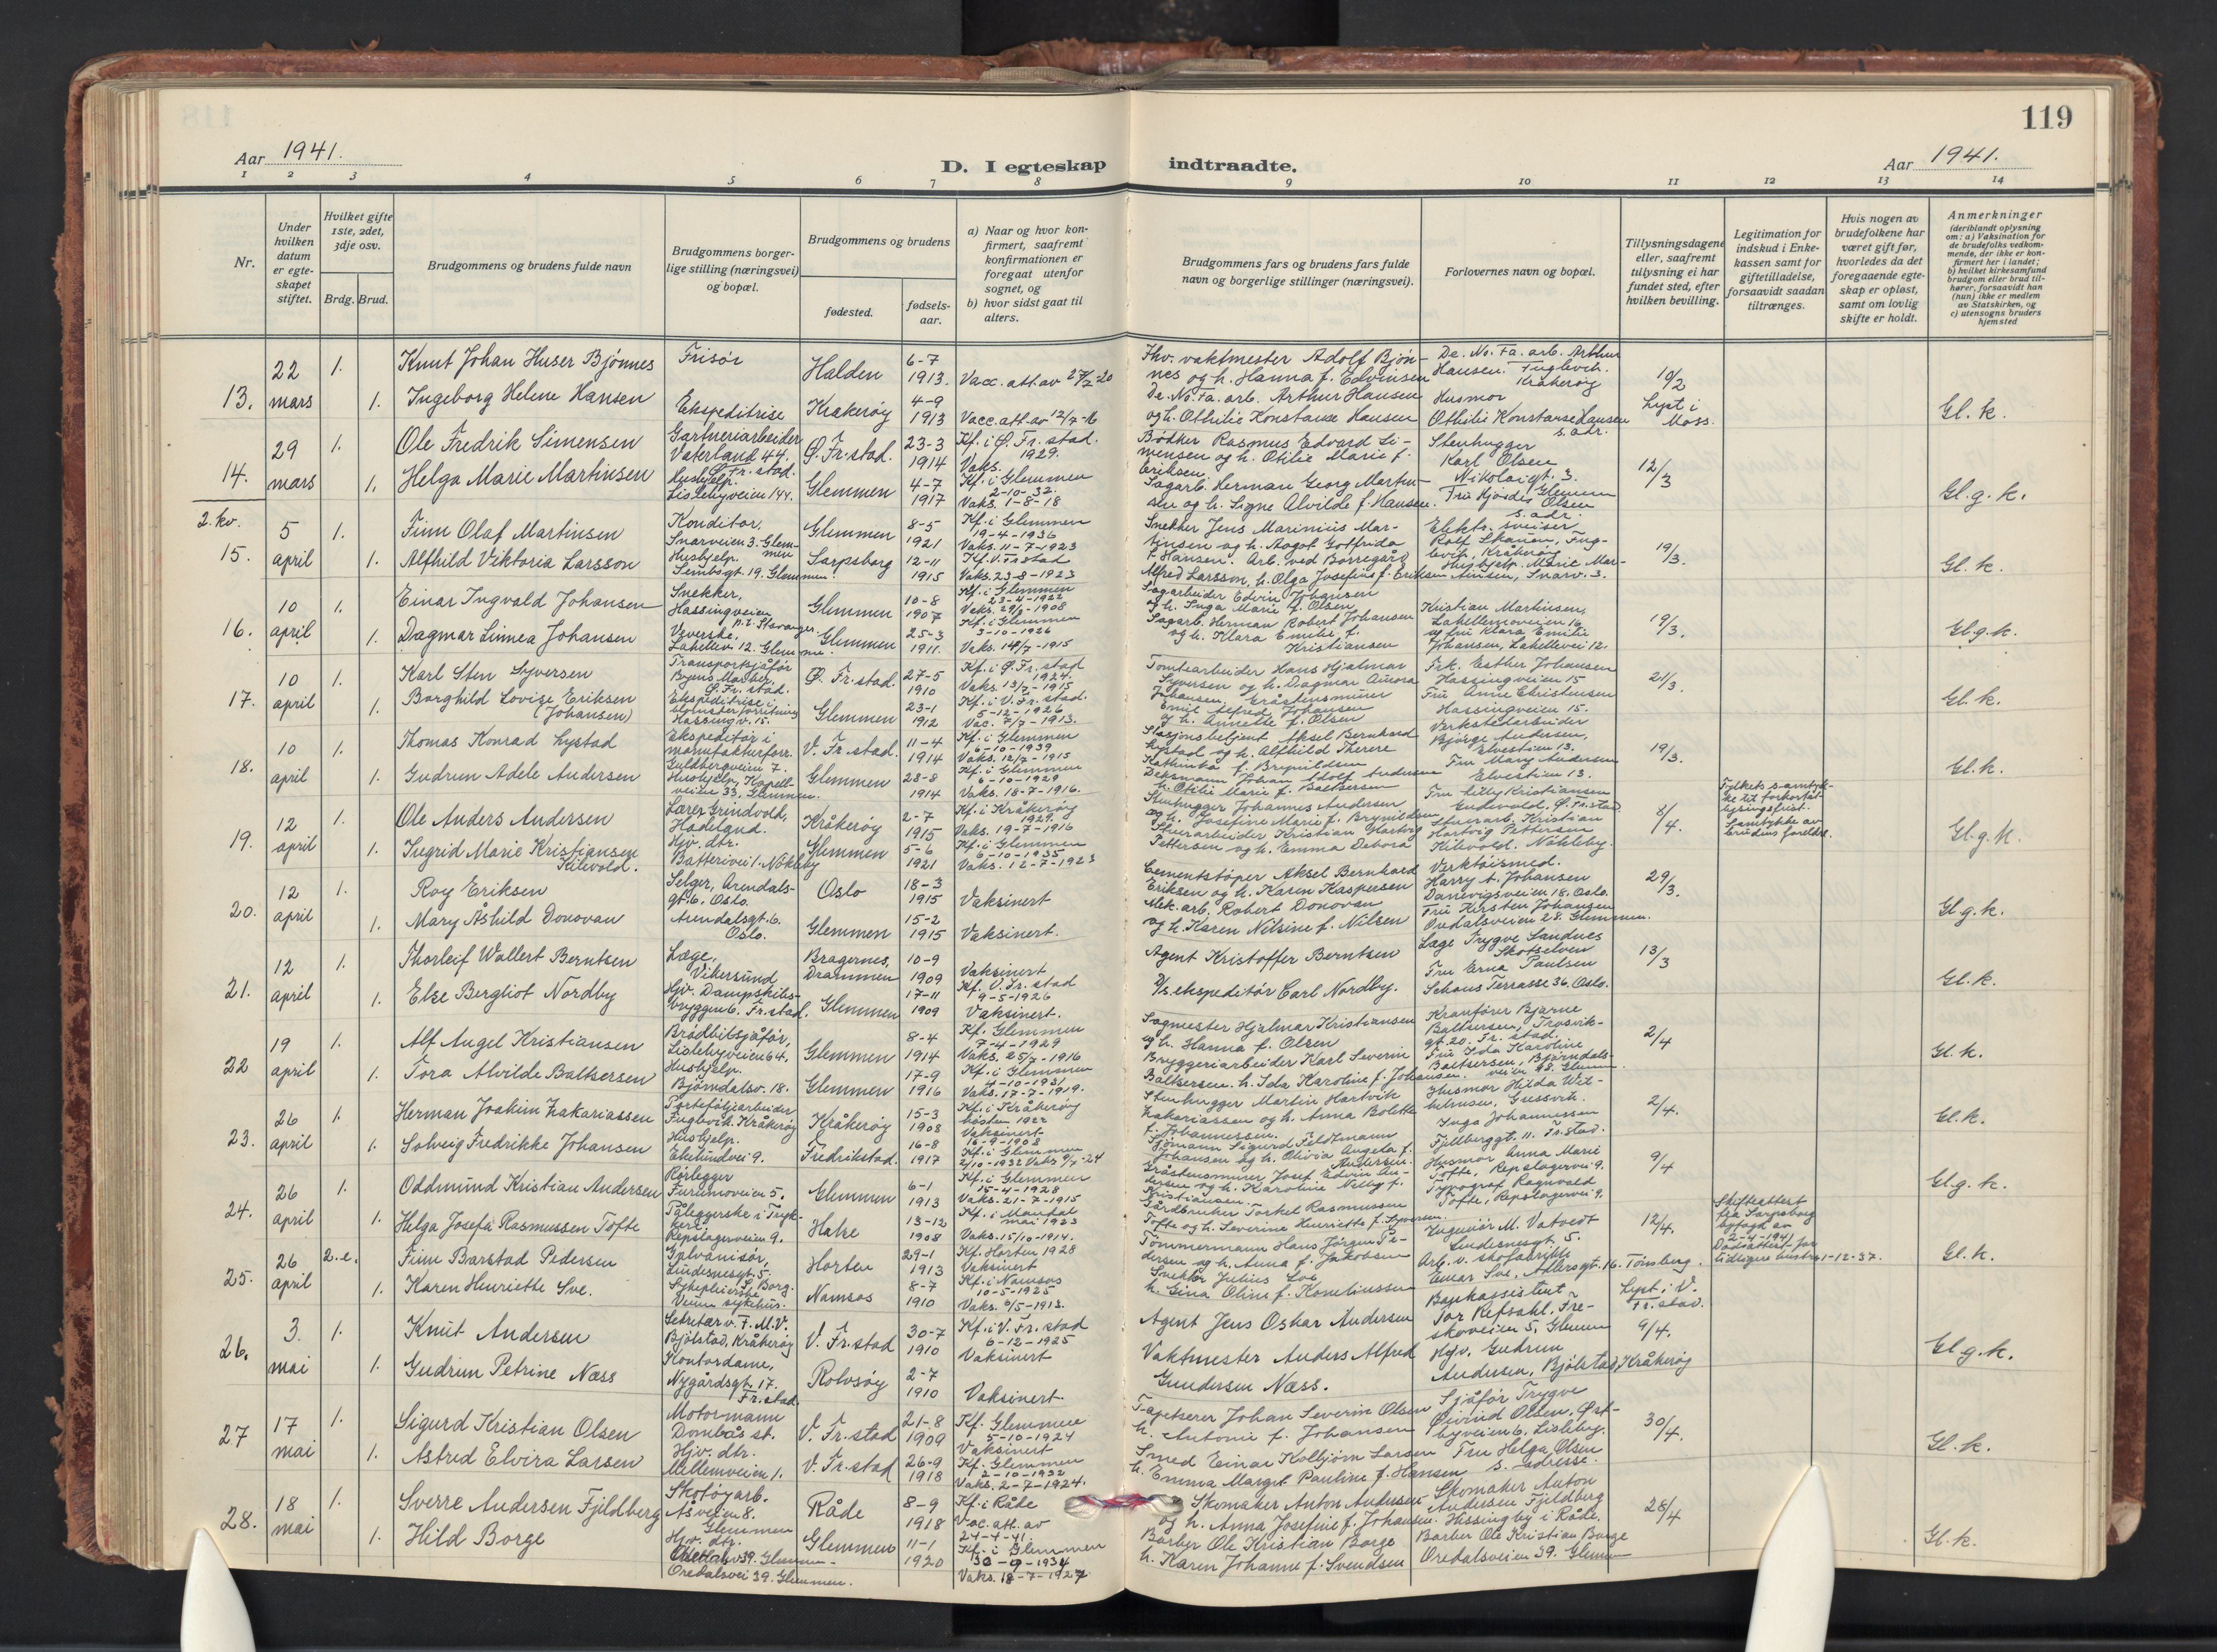 119
Aar 1941.
D. I egteskap indtraadte.
Aar 1941.
1 2 3 4 5 6 7 8 9 10 11 12 13 14
Nr.
Under hvilken datum er egteskapet stiftet.
Hvilket gifte 1ste, 2det, 3dje osv.
Brdg. Brud.
Brudgommens og brudens fulde navn
Brudgommens borgerlige stilling (næringsvei) og bopæl.
Brudgommens og brudens
fødested.
fødselsaar.
a) Naar og hvor konfirmert, saafremt konfirmationen er foregaat utenfor sognet, og
b) hvor sidst gaat til alters.
Brudgommens fars og brudens fars fulde navn og borgerlige stillinger (næringsvei).
Forlovernes navn og bopæl.
Tillysningsdagene eller, saafremt tillysning ei har fundet sted, efter hvilken bevilling.
Legitimation for indskud i Enkekassen samt for giftetilladelse, forsaavidt saadan tiltrænges.
Hvis nogen av brudefolkene har været gift før, hvorledes da det foregaaende egteskap er opløst, samt om lovlig skifte er holdt.
Anmerkninger (deriblandt oplysning om: a) Vaksination for de brudefolks vedkommende, der ikke er konfirmert her i landet; b) hvilket kirkesamfund brudgom eller brud tilhører, forsaavidt han (hun) ikke er medlem av Statskirken, og c) utensogns bruders hjemsted
13. 22 mars 1. Knut Johan Huser Bjønnes Frisør Halden 6-7 1913. Vacc. att. av
Fhv. vaktmester Adolf Bjønnes og h. Hanna f. Edvinsen
De. No. Fa. arb. Arthur Hansen. Fuglevik. Kråkerøy
10/2 Lyst i Moss. Gl. k.
1. Ingeborg Helene Hansen Ekspeditrise Kråkerøy 4-9 1913 Vacc. att. av 12/7-16
De. No. Fa. arb. Arthur Hansen og h. Othilie Konstanse Hansen
Husmor Othilie Konstanse Hansen s. adr.
14. 29 mars 1. Ole Fredrik Simensen Gartneriarbeider Vaterland 44. Ø. Fr. stad. Ø. Fr. stad. 23-3 1914 Kf. i Ø. Fr. stad. 1929. Vaks.
Bødker Rasmus Edvard Simensen og h. Otilie Marie f. Eriksen
Stenhugger Karl Olsen Nikolaigt. 3.
12/3 Gl. g. k.
1. Helga Marie Martinsen Hushjelp. Lislebyveien 144. Glemmen 4-7 1917 Kf. i Glemmen 2-10-32. Vaks. 1-8-18
Sagarb. Herman Georg Martinsen og h. Signe Alvilde f. Hansen.
Fru Hjørdis Olsen s. adr. Glemmen
2. kv.
15. 5 april 1. Finn Olaf Martinsen Konditor, Snarveien 3. Glemmen Glemmen 8-5 1921 Kf. i Glemmen 19-4-1936 Vaks. 11-7-1923
Snekker Jens Marinius Martinsen og h. Aagot Gotfrida f. Hansen.
Elektr. sveiser Rolf Skauen, Fuglevik, Kråkerøy
19/3. Gl. k.
1. Alfhild Viktoria Larsson Hushjelp. 19. Glemmen. Sarpsborg 12-11 1915 Kf. V. Fr. stad Vaks. 23-8-1923
Arb. ved Borregård Alfred Larsson, h. Olga Josefine f. Eriksen
Hushjelp Marie Martinsen, Snarv. 3.
16. 10 april 1. Einar Ingvald Johansen Snekker, Hassingveien p.t. Stavanger. Glemmen 10-8 1907 Kf. i Glemmen 23-4-1922
Sagarbeider Edvin Johansen og h. Inga Marie f. Olsen
Kristian Martinsen, Lahellemoveien 16
19/3. Gl. g. k.
1. Dagmar Linnea Johansen Veverske, Lahellev. 12. Glemmen. Glemmen 25-3 1911. Kf. i Glemmen 3-10-1926 Vaks. 14/7-1915
Sagarb. Herman Robert Johansen og h. Klara Emilie f. Kristiansen
og fru Klara Emilie Johansen, Lahellevei 12.
17. 10 april 1. Karl Sten Syversen Transportsjåfør Byens Marker, Ø. Fr. stad. Ø. Fr. stad. 27-5 1910 Kf. i Ø. Fr. stad 1924. Vaks. 13/7-1915
Tomtearbeider Hans Hjalmar Syversen og h. Dagmar Aurora Johansen.
Frk. Esther Johansen Hassingveien 15
21/3. Gl. k.
1. Borghild Lovise Eriksen (Johansen) Ekspeditrise i blomsterforretning Hassingv. 15. Glemmen 23-1 1912 Kf. i V. Fr. stad. 5-12-1926 Vac. 7/7-1913.
Gråstensmurer Emil Alfred Johansen og h. Annette f. Olsen
Fru Anne Christensen Hassingveien 15.
18. 10 april 1. Thomas Konrad Lystad Ekspeditør i manufakturforr. Guldbergveien 7. V. Fr. stad. 11-4 1914 Kf. i Glemmen 6-10-1929 Vaks. 12/7-1915
Stasjonsbetjent Aksel Bernhard Lystad og h. Alfhild Therese Kathinka f. Brynildsen
Verkstedarbeider Bjørge Andersen, Elvestien 13.
19/3. Gl. k.
1. Gudrun Adele Andersen Hushjelp, Kapellveien 33, Glemmen. Glemmen 28-8 1914 Kf. i Glemmen 6-10-1929 Vaks. 18-7-1916.
Deksmann Johan Adolf Andersen h. Otilie Marie f. Baltsersen
Fru Mary Andersen Elvestien 13.
19. 12 april 1. Ole Anders Andersen Lærer Grindvold, Hadeland. Kråkerøy 2-7 1915 Kf. i Kråkerøy 1929. Vaks. 19-7-1916
Stenhugger Johannes Andersen og h. Josefine Marie f. Brynildsen
Fru Lilly Kristiansen Ø. Fr. stad
8/4. Fylkets samtykke til forkortet lysingsfrist. Samtykke av brudens foreldr. Gl. g. k.
1. Ingrid Marie Kristiansen Kilevold. Hjv. dtr. Batterivei 1. Nøkleby Glemmen 5-6 1921 Kf. i Glemmen 6-10-1935 Vaks. 12-7-1923
Stuerarbeider, Kristian Hartvig Pettersen og h. Emma Debora
Stuerarb. Kristian Hartvig Pettersen Kilevold. Nøkleby.
20. 12 april 1. Roy Eriksen Selger, Arendalsgt. 6. Oslo. Oslo 18-3 1915 Vaksinert
Cementstøper Aksel Bernhard Eriksen og h. Karen Kaspersen
Verktøismed. Harry A. Johansen Danevigsveien 18. Oslo.
29/3. Gl. g. k.
1. Mary Åshild Donovan Arendalsgt. 6. Oslo. Glemmen 15-2 1915 Vaksinert.
Mek. arb. Robert Donovan og h. Karen Nilsine f. Nilsen
Fru Kirsten Johansen Oredalsveien 28. Glemmen.
21. 12 april 1. Thorleif Wallert Berntsen Læge, Vikersund Bragernes, Drammen 10-9 1909 Vaksinert
Agent Kristoffer Berntsen
Læge Trygve Sandnes Skotselven
13/3 Gl. k.
1. Else Bergliot Nordby Hjv. Dampskibsbryggen 6. Fr. stad. Glemmen 17-11 1909 Kf. V. Fr. stad 9-5-1926 Vaksinert.
D/s. ekspeditør Carl Nordby.
Fru Erna Paulsen Schous Terrasse 36. Oslo.
22 19 april 1. Alf Angel Kristiansen Brødbilsjåfør, Lislebyveien 64, Glemmen 8-4 1914 Kf. Glemmen 7-4-1929 Vaks. 25/7-1916
Sagmester Hjalmar Kristiansen og h. Hanna f. Olsen
Kranfører Bjarne Baltsersen, Trosvikgt. 20. Fr. stad.
2/4 Gl. k.
1. Tora Alvilde Baltsersen Hushjelp. Bjørndalsv. 18. Glemmen 17-9 1916 Kf. i Glemmen 4-10-1931 Vaks. 17-7-1919.
Bryggeriarbeider Karl Severin Baltsersen. h. Ida Karoline f. Johansen.
Fru Ida Karoline Baltsersen, Bjørndalsveien 18. Glemm.
23. 26 april 1. Herman Joakim Zakariassen Porteføljiarbeider Fuglevik. Kråkerøy Kråkerøy 15-3 1908 Kf. i Kråkerøy høsten 1922 Vaksinert 16-9-1908
Stenhugger Martin Hartvik Zakariassen og h. Anna Bolette f. Johannessen.
Husmor Hilda Wilhelmsen, Gressvik.
2/4. Gl. k.
1. Solveig Fredrikke Johansen Hushjelp. Ekelundvei 9. Fredrikstad. 16-8 1917 Kf. i Glemmen 2/10-1932 Vaks. 9/7-24
Sjømann Sigurd Feldtmann Johansen og h. Olivia Angela f. Andersen.
Inga Johannessen Fjellberggt. 11. Fr. stad.
24. 26 april 1. Oddmund Kristian Andersen Rørlegger Furumoveien 5. Glemmen 6-1 1913 Kf. i Glemmen 15-4-1928 Vaks. 21-7-1915
Gråstensmurer Josef Edvin Andersen og h. Karoline Nelly f. Kristiansen.
Husmor Anna Marie Tofte, Repslagervei 9.
9/4 Gl. g. k.
1. Helga Josefa Rasmussen Tofte Påleggerske i Trykkeri Repslagerveien 9. Halse 13-12 1908 Kf. i Mandal mai 1923 Vaks. 15/10-1914.
Gårdbruker Torkel Rasmussen Tofte og h. Severine Henriette f. Syversen.
Typograf Ragnvald Tofte, Repslagervei 9.
25. 26 april 2. e. Finn Barstad Pedersen Galvanisør, Lindesnesgt. 5. Horten 29-1 1913 Kf. Horten 1928 Vaksinert
Tømmermann Hans Jørgen Pedersen og h. Anna f. Jakobsen
Ingeniør M. Vatvedt Lindesnesgt. 5.
12/4. Skifteattest fra Sarpsborg byfogd av 2-4-1941 Dødsattest for tidligere hustru 1-12-37. Gl. k.
1. Karen Henriette Sve. Sykepleierske S. Borg. Veum sykehus. Namsos 8-7 1910 Kf. i Namsos 10-5-1925 Vaks. 9/5-1913.
Snekker Julius Sve h. Gina Oline f. Korneliussen
Arb. v. skofabrikk Einar Sve, Adlersgt. 16. Tønsberg.
26. 3. mai 1. Knut Andersen Sekretær v. F. M. V. Bjølstad, Kråkerøy V. Fr. stad 30-7 1910 Kf. i V. Fr. stad 6-12-1925 Vaksinert
Agent Jens Oskar Andersen
Bankassistent Tor Refsahl. Freskoveien 5, Glemm
Lyst i V. Fr. stad. 9/4. Gl. g. k.
1. Gudrun Petrine Næss Kontordame, Nygårdsgt. 17. Fr. stad. Rolvsøy 2-7 1910 Vaksinert
Vaktmester Anders Alfred Gundersen Næss.
Hjv. Gudrun Andersen, Bjølstad, Kråkerøy
27 17 mai 1. Sigurd Kristian Olsen Motormann Dombås st. V. Fr. stad 21-8 1909 Kf. Glemmen 5-10-1924 Vaksinert
Tapetserer Johan Severin Olsen h. Antonie f. Johansen
Sjåfør Trygve Øivind Olsen, Østbyveien 6. Lisleby.
30/4. Gl. k.
1. Astrid Elvira Larsen Hjv. dtr. Mellemveien 1. V. Fr. stad 26-9 1918 Kf. Glemmen 2-10-1932 Vaks. 2-7-1924.
Smed Einar Kolbjørn Larsen h. Emma Margit Pauline f. Hansen
Fru Helga Olsen s. adresse.
28. 18 mai 1. Sverre Andersen Fjeldberg Skotøyarb. Åsveien 8. Glemmen Råde 8-9 1918 Kf. i Råde Vac. att. av 24-4-41.
Skomaker Anton Andersen og h. Anna Josefine f. Johansen.
Skomaker Anton Andersen Fjeldberg Hissingby i Råde.
28/4 Gl. k.
1. Hild Borge Hjv. dtr. Oredalsv. 39. Glemmen. Glemmen 11-1 1920 Kf. i Glemmen 30-9-1934 Vaks. 18-7-1927
Oredalsvei 39. Glemmen.
Barber Ole Kristian Borge h. Karen Johanne f. Svendsen
Barber Ole Kristian Borge Oredalsveien 39. Glemmen